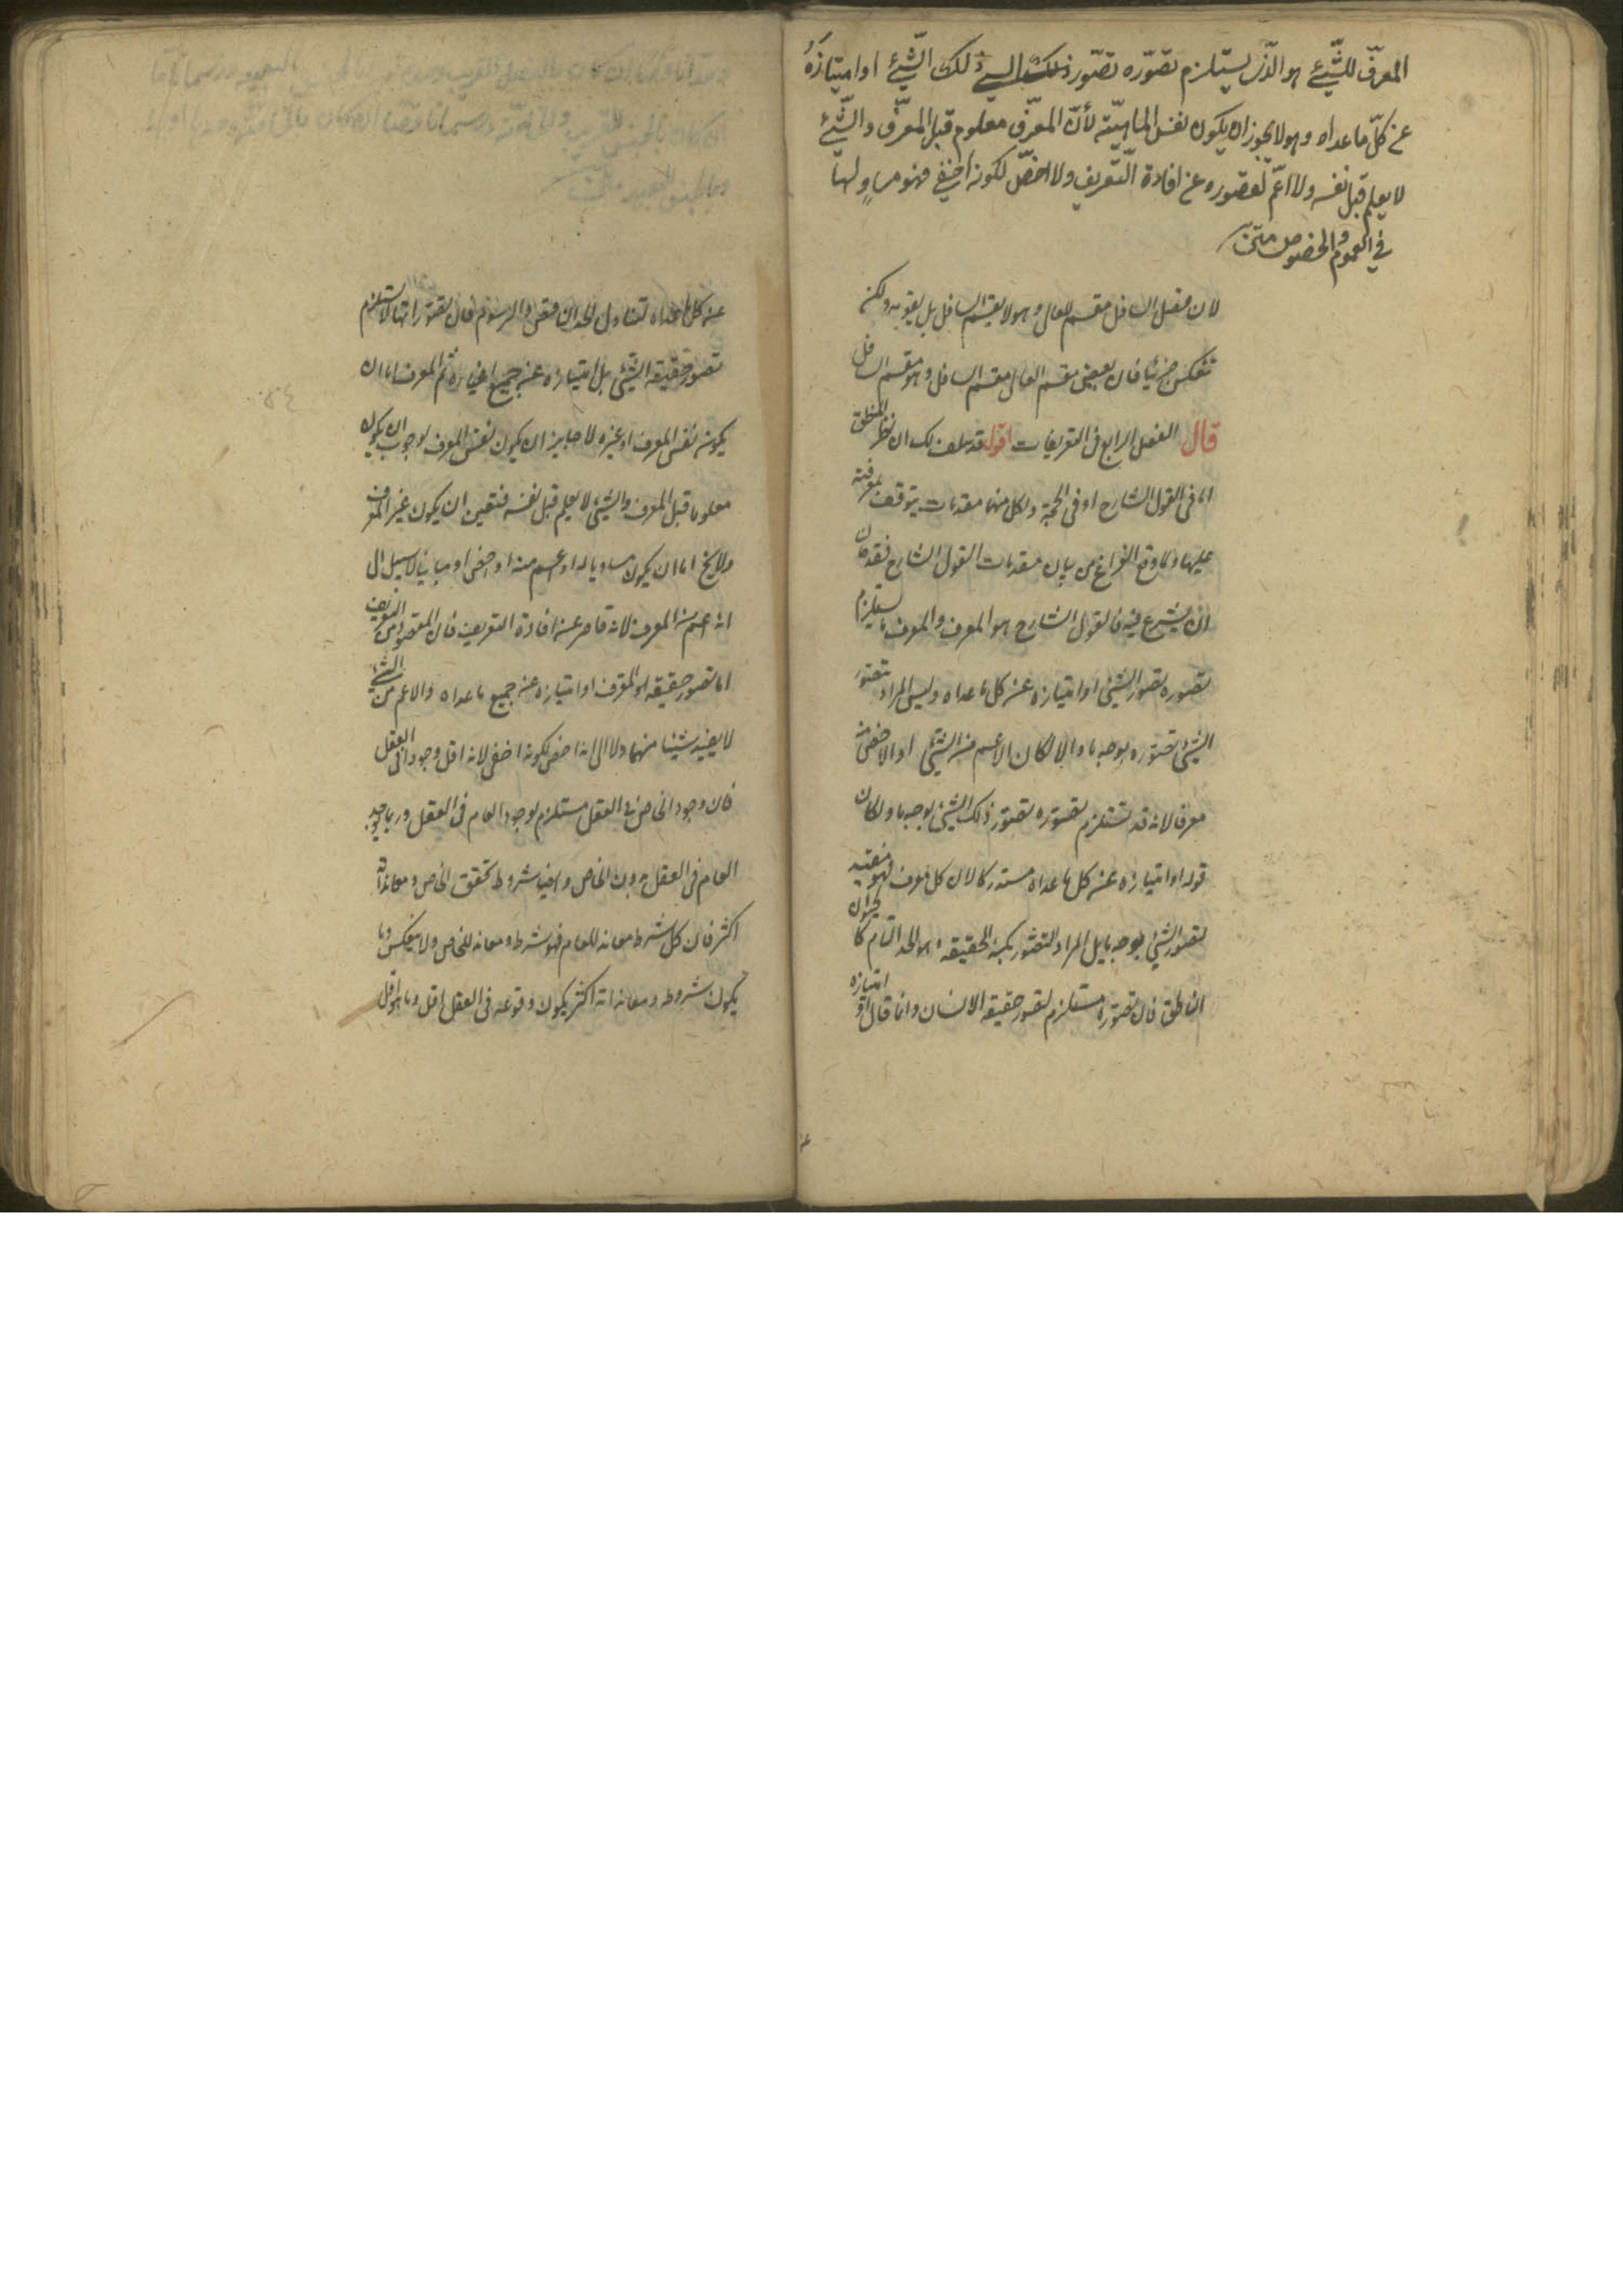 المعرّف للشّيئ هو الّذى يستلزم تصوّره تصوّر ذلك الشيئ ذلك الشّيئ او امتيازهُ
عن كلّ ما عداه وهو لا يجوز ان يكون نفس الماهيّة لأنّ المعرّف معلوم قبل المعرَّف والشّيئ
لا يعلم قبل نفسه ولا اعمّ لقصوره عن افادة التّعريف ولا اخصّ لكونه اخفى فهو مساوٍ لها
فى العموم والخصوص متن
لان فصل السافل مقسم للعالى وهو لا يقسم السافل بل يقومه ولكن
تنعكس جزئيا فان بعض مقسم العالى مقسم السافل وهو مقسم السافل
قال الفصل الرابع فى التعريفات اقول قد سلف لك ان نظر المنطقى
اما فى القول الشارح او فى الحجة ولكل منهما مقدمات يتوقف معرفته
عليها ولما وقع الفراغ من بيان مقدمات القول الشارح فقد حان
ان يشرع فيه فالقول الشارح هو المعرف والمعرف ما يستلزم
تصوره تصور الشيئ او امتيازه عن كل ما عداه وليس المراد بتصور
الشيئ تصوره بوجه ما والا لكان الاعم من الشيئ او الاخص منه
معرفا لانه قد تستلزم تصوره تصور ذلك الشيئ بوجه ما ولكان
قوله او امتيازه عن كل ما عداه مستدركا لان كل معرف فهو مفيد
لتصور الشيئ بوجه ما بل المراد التصور بكنه الحقيقه وهو الحد التام كالحيوان
الناطق فان تصوره مستلزم لتصور حقيقه الانسان وانما قال او امتيازه
عن كل ما عداه لتناول الحد الناقص والرسوم فان تصوراتها لا تستلزم
تصور حقيقه الشيئ بل امتيازه عن جميع اغياره ثم المعرف اما ان
يكون نفس المعرف او غيره لا جايز ان يكون نفس المعرف لوجوب ان يكون
معلوما قبل المعرف والشيئ لا يعلم قبل نفسه فتعين ان يكون غير المعرف
ولا يخ اما ان يكون مساويا له او اعم منه او اخص او مباينا لا سبيل الى
انه اعم من المعرف لانه قاصر عن افادة التعريف فان المقصود من التعريف
اما تصور حقيقه المعرف او امتيازه عن جميع ما عداه والاعم من الشيئ
لا يفيد شيئا منهما ولا الى انه اخص لكونه اخفى لانه اقل وجودا فى العقل
فان وجود الخاص فى العقل مستلزم لوجود العام فى العقل وربما يوجد
العام فى العقل بدون الخاص وايضا شروط تحقق الخاص ومعانداته
اكثر فان كل شرط ومعاند للعام فهو شرط ومعاند للخاص ولا ينعكس وما
يكون شروطه ومعانداته اكثر يكون وقوعه فى العقل اقل وما هو اقل